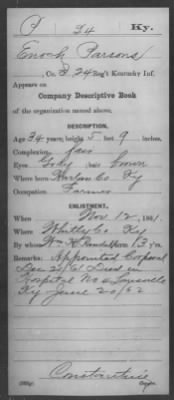 P 24 Ky.
Enoch Parsons
, Co. B 24 Reg't Kentucky Inf.
Appears on
Company Descriptive Book
of the organization named above.
DESCRIPTION.
Age 34 years; 5 feet 9 inches.
Complexion fair
Eyes Grey ; hair brown
Where born Harlan Co Ky
Occupation Farmer
ENLISTMENT.
When Nov. 12, 1861.
Where Whitley Co Ky
By whom Wm H Randall; term 3 y'rs.
Remarks: Appointed Corporal
Dec 21/61 Died in
Hospital No Louisville
Ky June 20/62
Copyist.